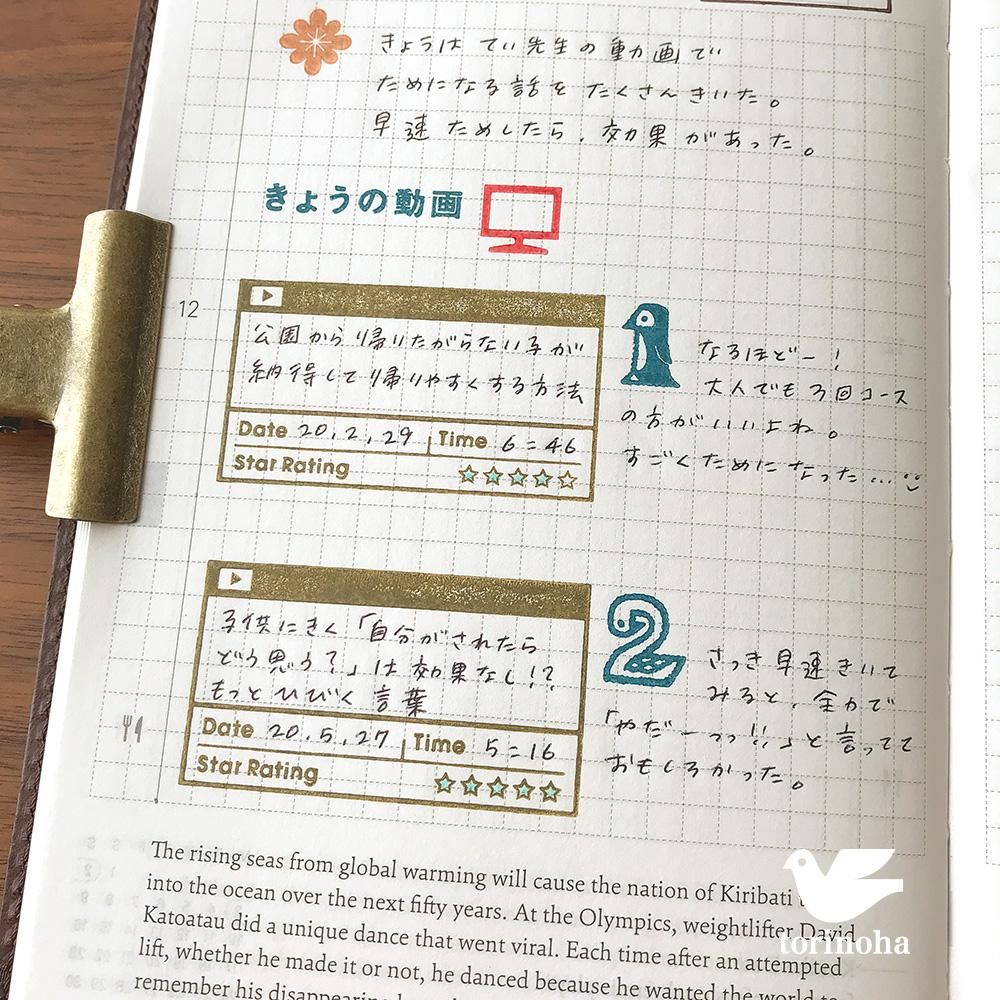 きょうは てぃ先生の動画で
ためになる話を たくさんきいた。
早速 ためしたら、効果 があった。
きょうの動画
12
公園から帰りたがらない子が
納得して帰りやすくする方法
Date 20.2.29 Time 6:46
Star Rating
なるほどー!
大人でも3回コース
の方がいいよね。
すごくためになった…
子供にきく「自分がされたら
どう思う?」は効果なし!?
もっとひびく言葉
Date 20.5.27 Time 5:16
Star Rating
2
さっき早速きいて
みると、全力で
「やだーっっ!!」と言ってて
おもしろかった。
The rising seas from global warming will cause the nation of Kiribati
into the ocean over the next fifty years. At the Olympics, weightlifter David
Katoatau did a unique dance that went viral. Each time after an attempted
lift, whether he made it or not, he danced because he wanted the world to
remember his disappearing
torinoha